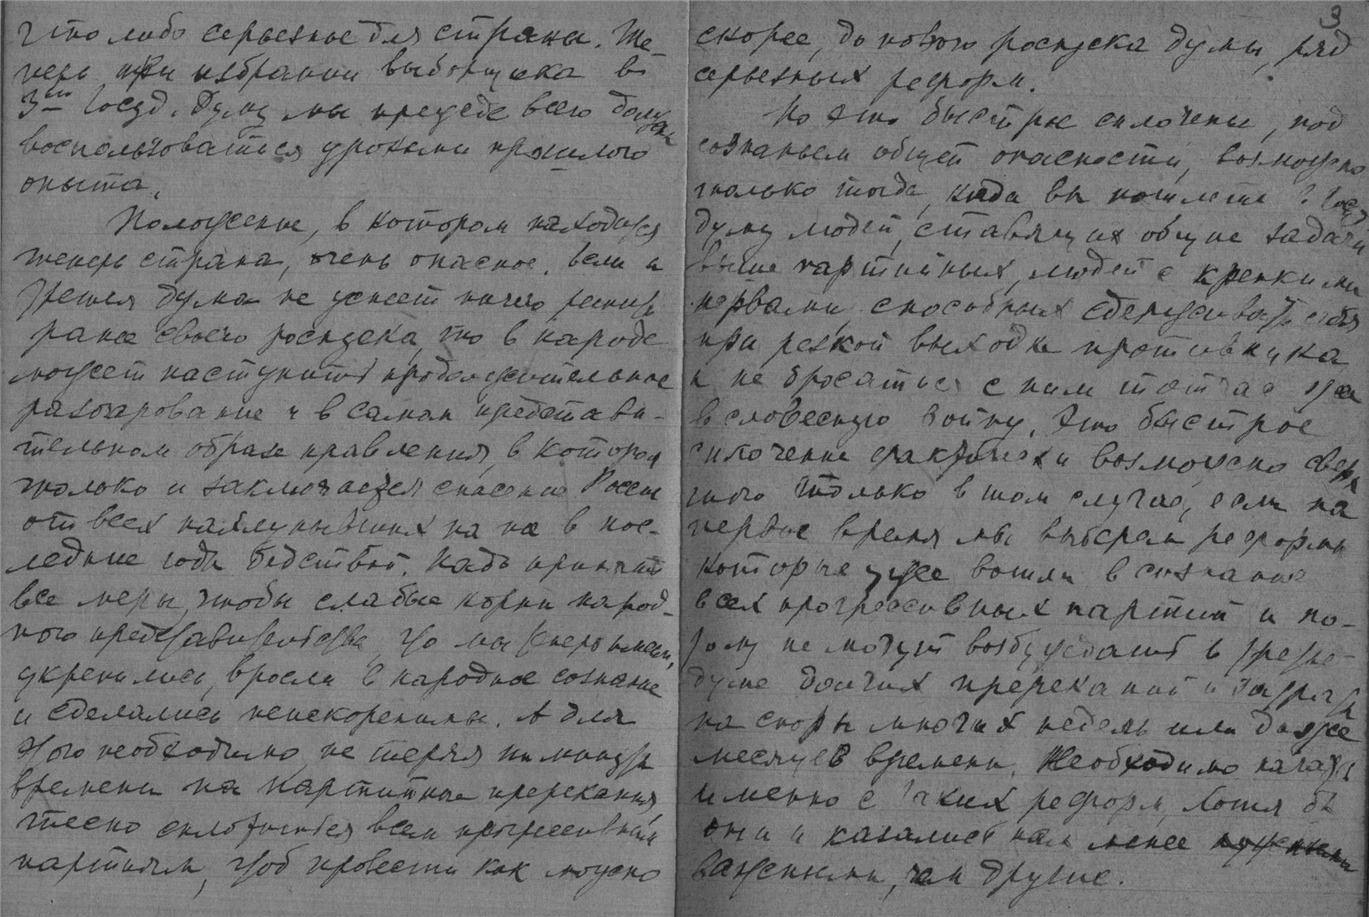 что либо серьезное для страны. Те-
перь при избрании выборщика в
3ью Госуд. Думу мы прежде всего должны
воспользоваться уроками прошлого
опыта.
Положение, в котором находится
теперь страна, очень опасное. Если и
третья дума не успеет ничего
ранее своего роспуска, то в народе
может наступить продолжительное
разочарование и в самом представи-
тельном образе правления, в котором
только и заключается спасение России
от всех нахлынувших на нее в пос-
ледние годы бедствий. Надо принять
все меры, чтобы слабые корни народ-
ного представительства, что мы теперь имеем,
укрепились, вросли в народное сознание
и сделались неискоренимы. А для
этого необходимо, не теряя ни минуты
времени на партийные пререкания,
тесно сплотиться всем прогрессивным
партиям, чтоб провести как можно
3
скорее, до нового роспуска думы, ряд
серьезных реформ.
Но это быстрое сплочение, под
сознаньем общей опасности, возможно
только тогда, когда вы пошлете в Госуд.
думу людей, ставящих общие задачи
выше партийных, людей с крепкими
нервами, способных сдерживать себя
при резкой выходке противника
и не бросаться с ним тотчас же
в словесную войну. Это быстрое
сплочение фактически возможно сверх
того только в том случае, если на
первое время мы выберем реформы
которые уже вошли в сознание
всех прогрессивных партий и по-
тому не могут возбуждать в третьей
думе долгих пререканий и
на споры многих недель или даже
месяцев времени. Необходимо начать
именно с таких реформ, хотя бы
они и казались нам менее нужными
важными, чем другие.